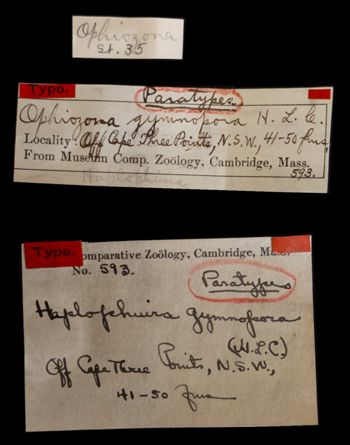 Ophiozona
St. 35
Type.
Paratypes
Ophiozona gymnopora H. L. C.
Locality: Off Cape Three Points, N.S.W., 41-50 fms.
From Museum Comp. Zoölogy, Cambridge, Mass.
593.
Type.
Comparative Zoölogy, Cambridge, Mass.
No. 593.
Paratypes
Haplophiura gymnopora
(H.L.C.)
Off Cape Three Points, N.S.W.,
41-50 fms